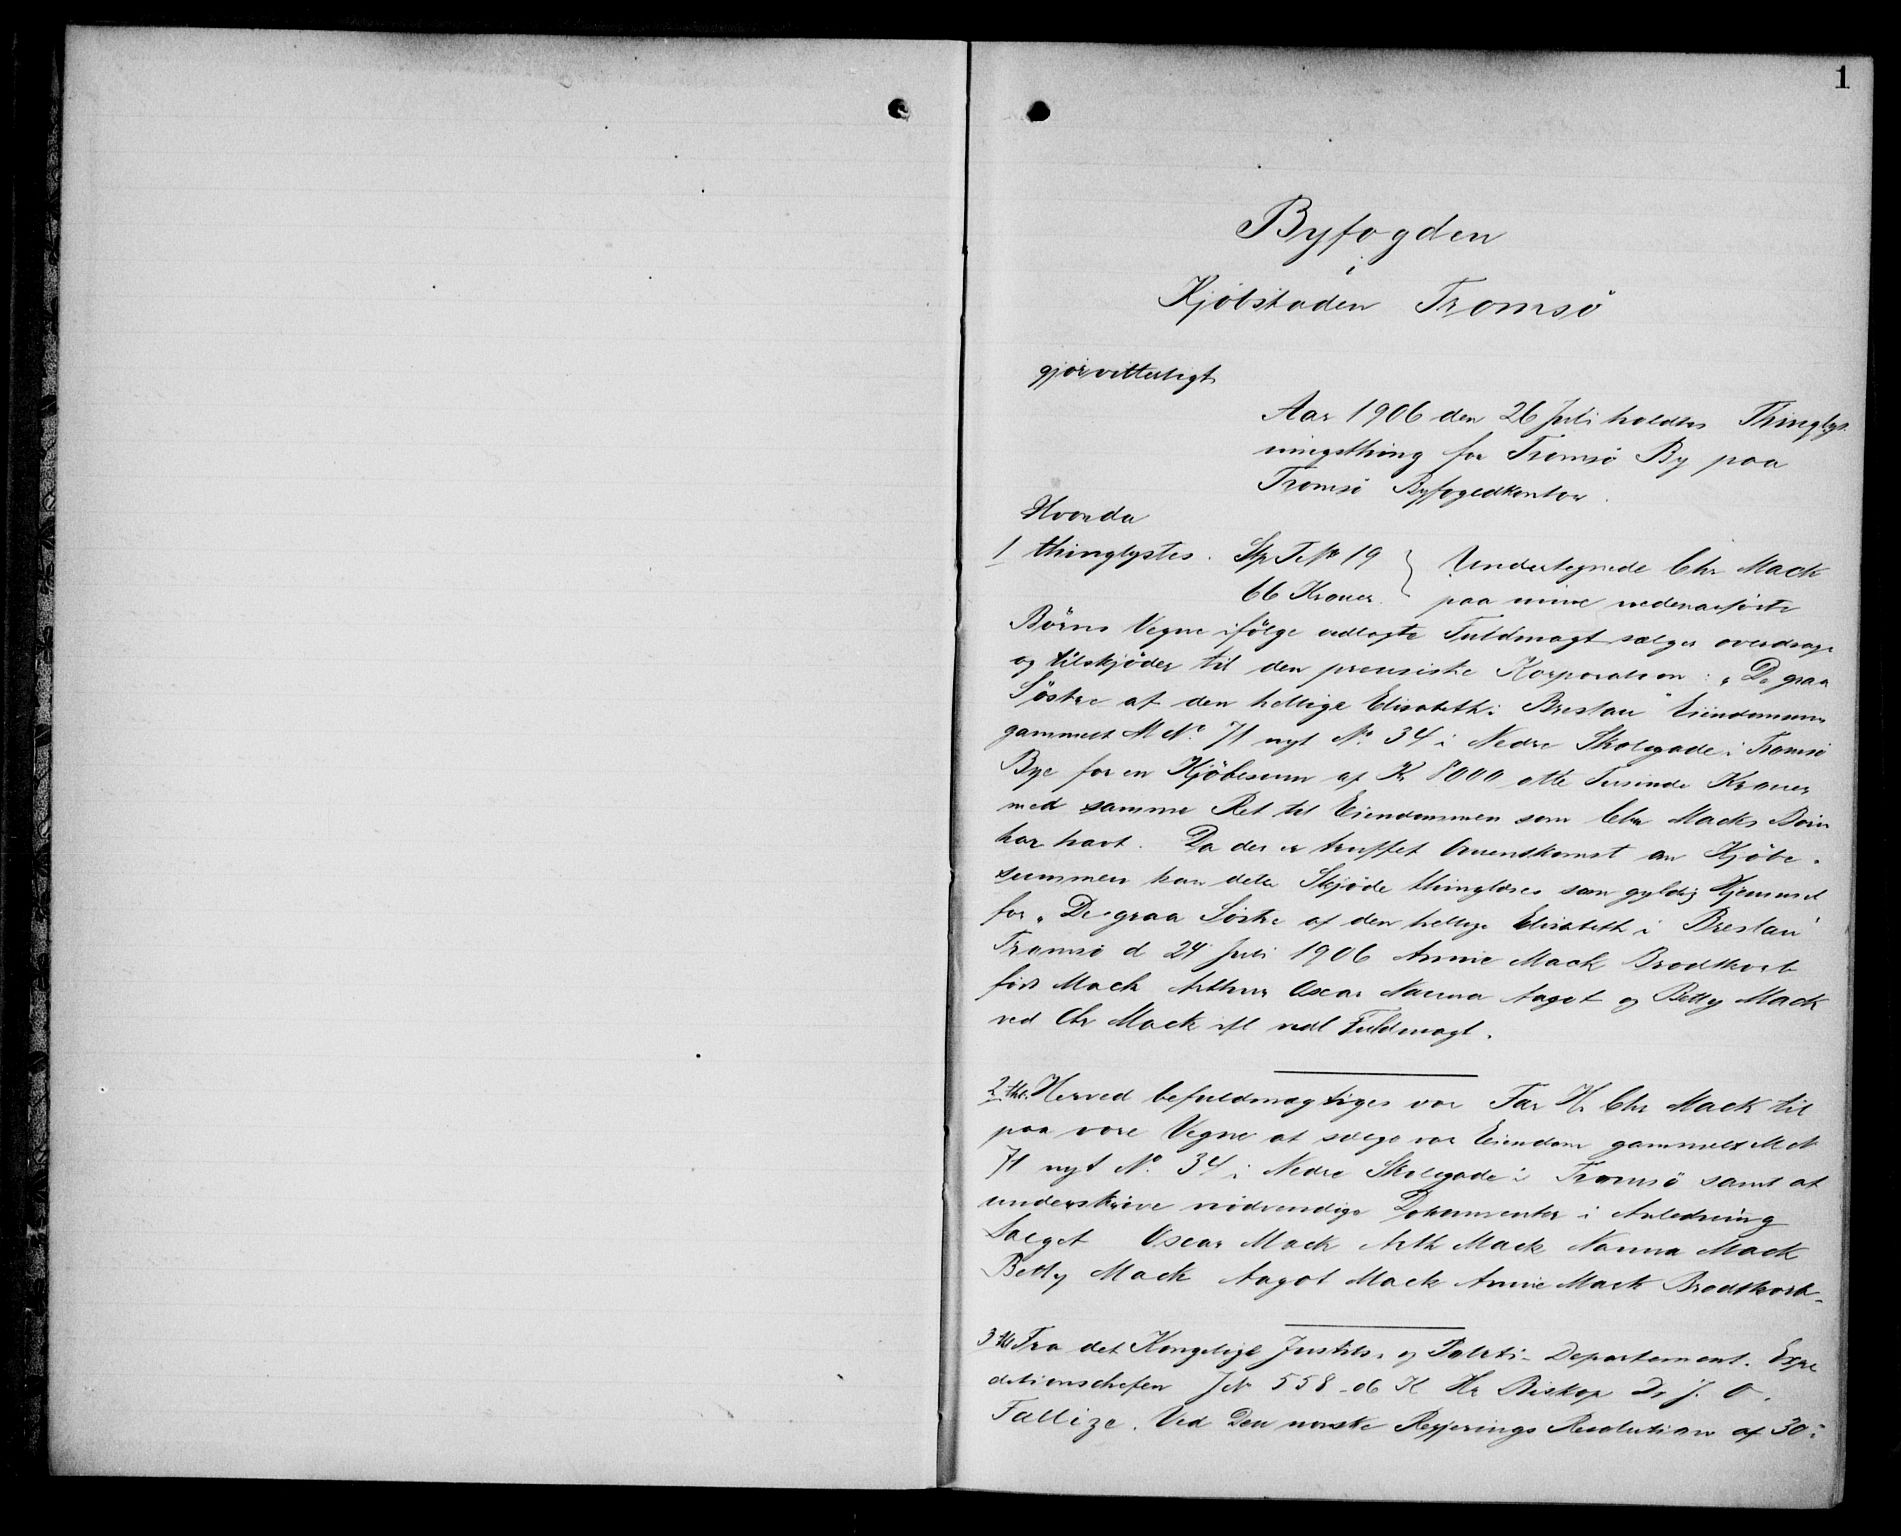 1
Byfogden
i
Kjöbstaden Tromsö
gjör vitterligt
Aar 1906 den 26 Juli holdtes Thinglys-
ningsthing for Tromsö By paa
Tromsö Byfogedkontor.
Hvorda
1 thinglystes. Stp T No 19 } Undertegnede Chr Mack
66 Kroner. paa mine nedenanförte
Börns Vegne ifölge vedlagte Fuldmagt sælger overdrager
og tilskjöder til den preusiske Korporation: „De graa
Söstre af den hellige Elisabeth i Breslau" Eiendommen
gammelt M No. 71 nyt No. 34 i Nedre Skolegade i Tromsö
Bye for en Kjöbesum af Kr 8000 otte Tusinde Kroner
med samme Ret til Eiendommen som Chr Macks Börn
har havt. Da der er truffet Overenskomst om Kjöbe-
summen kan dette Skjöde thinglæses som gyldig Hjemmel
for „De graa Söstre af den hellige Elisabeth i Breslau"
Tromsö d 24 Juli 1906 Annie Mack Brodtkorb
föd Mack Arthur Oscar Nanna Aagot og Betty Mack
ved Chr Mack ifl vedl Fuldmagt.
2 thl. Herved befuldmægtiges vor Far Hr Chr Mack til
paa vore Vegne at sælge vor Eiendom gammelt M N
71 nyt No. 34 i Nedre Skolegade i Tromsö samt at
underskrive nödvendige Dokumenter i Anledning
Salget Oscar Mack Arth Mack Nanna Mack
Betty Mack Aagot Mack Annie Mack Brodtkorb.
3 thl Fra det Kongelige Justits- og Politi-Departement. Expe
ditionschefen J N 558-06 K Hr Biskop Dr J. O.
Fallize. Ved Den norske Regjerings Resolution af 30-